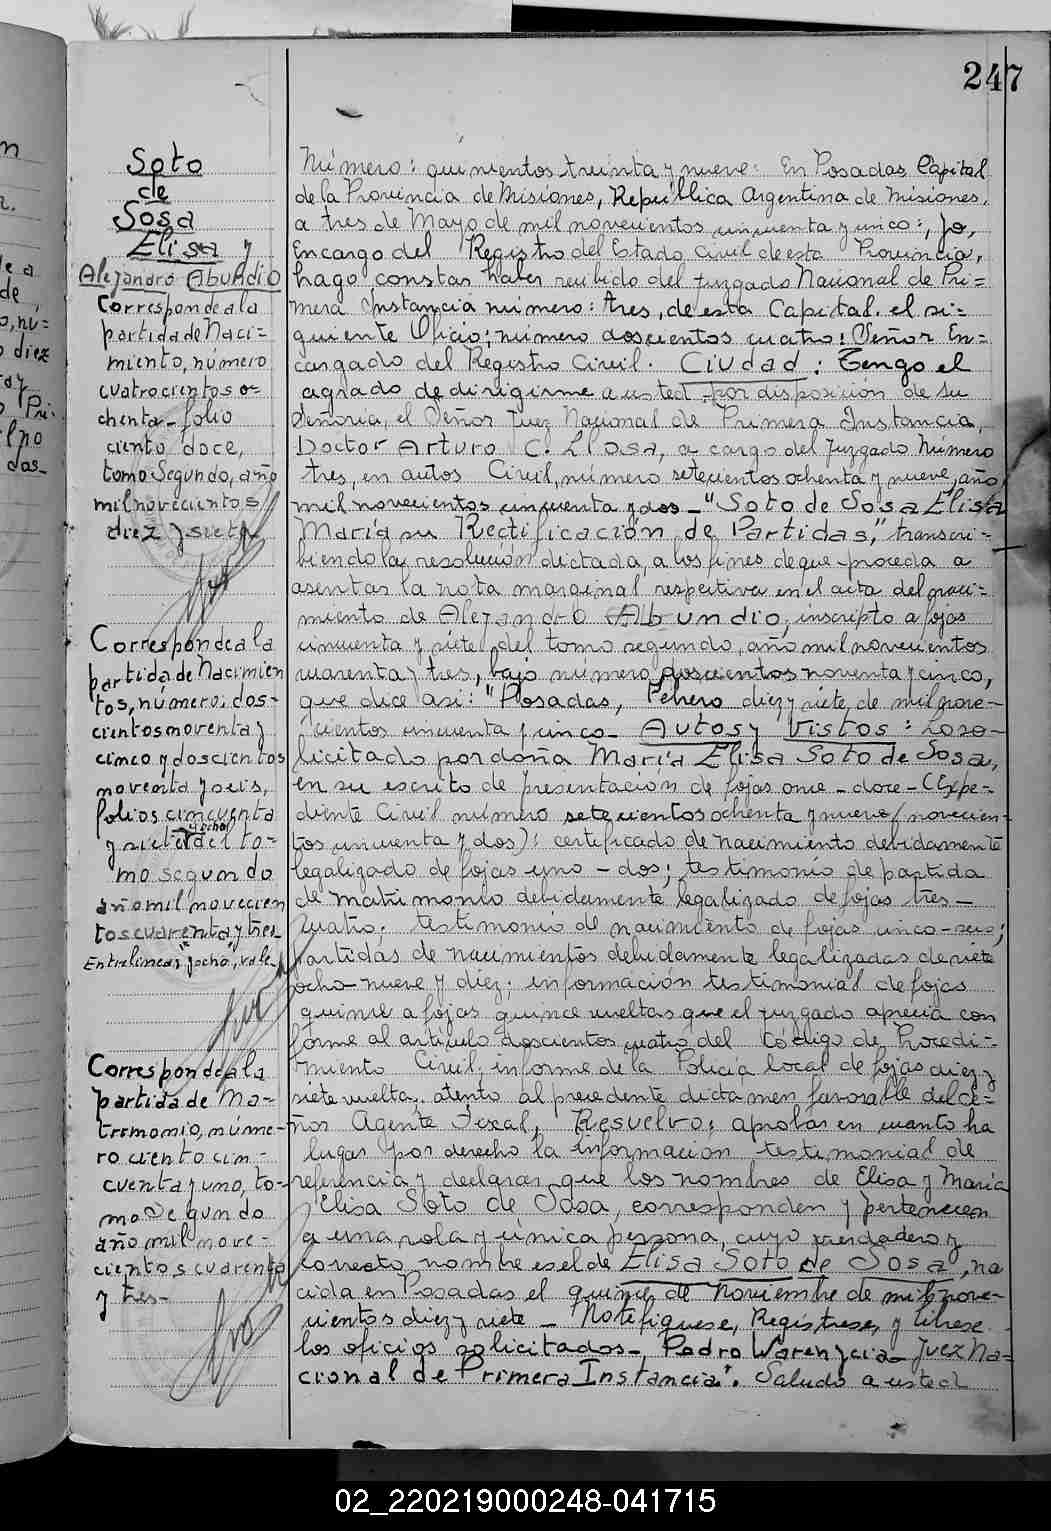 247
Soto
de
Sosa
Elisa y
Alejandro Abundio
Corresponde a la
partida de Naci-
miento, número
cuatrocientos o=
chenta - folio
ciento doce,
tomo Segundo, año
mil novecientos
diez y siete
Corresponde a la
partida de Nacimien
tos, número: dos-
cientos noventa y
cinco y doscientos
noventa y seis,
folios cincuenta
y siete y ocho del to-
mo segundo
año mil novecien
tos cuarenta y tres
Entrelineas "y ocho", vale
Corresponde a la
partida de Ma-
tremonio, núme-
ro ciento cin-
cuenta y uno, to-
mo Segundo
año mil nove-
cientos cuarenta
y tres-
Número: quinientos treinta y nueve: En Posadas Capital
de la Provincia de Misiones, República Argentina de Misiones,
a tres de Mayo de mil novecientos cincuenta y cinco:, yo,
Encargo del Registro del Estado Civil de esta Provincia,
hago constar haber recibido del juzgado Nacional de Pri=
mera Instancia número: tres, de esta Capital. el si=
guiente Oficio; número doscientos cuatro: Señor En=
cargado del Registro Civil. Ciudad: Tengo el
agrado de dirigirme a usted por disposición de su
Señoria, el Señor Juez Nacional de Primera Instancia,
Doctor Arturo C. Llosa, a cargo del Juzgado Número
tres, en autos Civil, número setecientos ochenta y nueve, año
mil novecientos cincuenta y dos - "Soto de Sosa Elisa
María su Rectificación de Partidas," transcri=
biendo la resolución dictada, a los fines de que proceda a
asentar la nota marginal respectiva en el acta del naci=
miento de Alejandro Abundio, inscripto a fojas
cincuenta y siete, del tomo segundo, año mil novecientos
cuarenta y tres, bajo número doscientos noventa y cinco,
que dice asi: "Posadas, Febrero diez y siete de mil nove-
cientos cincuenta y cinco- Autos y Vistos: Lo so-
licitado por doña María Elisa Soto de Sosa,
en su escrito de presentación de fojas once - doce - (Expe-
diente Civil número setecientos ochenta y nueve/novecien-
tos cincuenta y dos): certificado de nacimiento debidamente
legalizado de fojas uno - dos; testimonio de partida
de matrimonio debidamente legalizado de fojas tres-
cuatro; testimonio de nacimiento de fojas cinco-seis;
partidas de nacimientos debidamente legalizadas de siete
ocho nueve y diez; información testimonial de fojas
quince a fojas quince vueltas que el juzgado aprecia con
forme al artículo doscientos cuatro del Código de Procedi-
miento Civil; informe de la Policia local de fojas diez y
siete vuelta; atento al precedente dictamen favorable del Se=
ñor Agente Fiscal, Resuelvo: aprobar en cuanto ha
lugar por derecho la información testimonial de
referencia y declarar que los nombres de Elisa y María
Elisa Soto de Sosa, corresponden y pertenecen
a una sola y única persona, cuyo verdadero y
correcto nombre es el de Elisa Soto de Sosa, na
cida en Posadas el quince de Noviembre de mil nove-
cientos diez y siete - Notifiquese, Registrese, y librese
los oficios solicitados -, Pedro Warenycia - Juez Na=
cional de Primera Instancia". Saludo a usted
02_220219000248-041715